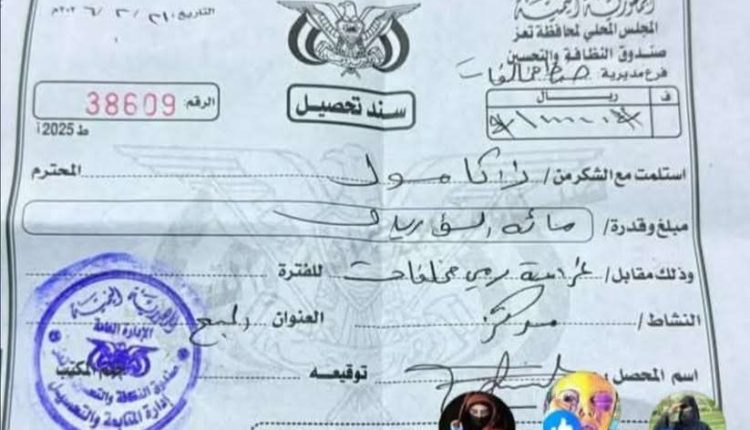 الجمهورية اليمنية
المجلس المحلي لمحافظة تعز
صندوق النظافة والتحسين
فرع مديرية
التاريخ: ٢١ / ٢ / ٢٠٢٦م
الرقم: 38609
ط 2025أ
سند تحصيل
ف ريال
#١٠٠٠٠٠#
استلمت مع الشكر من / المحترم
مبلغ وقدرة / مائه الف ريال
وذلك مقابل / غرامة رمي مخلفات للفترة
النشاط / مركز العنوان
اسم المحصل توقيعه ختم المكتب
الجمهورية اليمنية
الإدارة العامة
صندوق النظافة والتحسين تعز
إدارة المتابعة والتحصيل